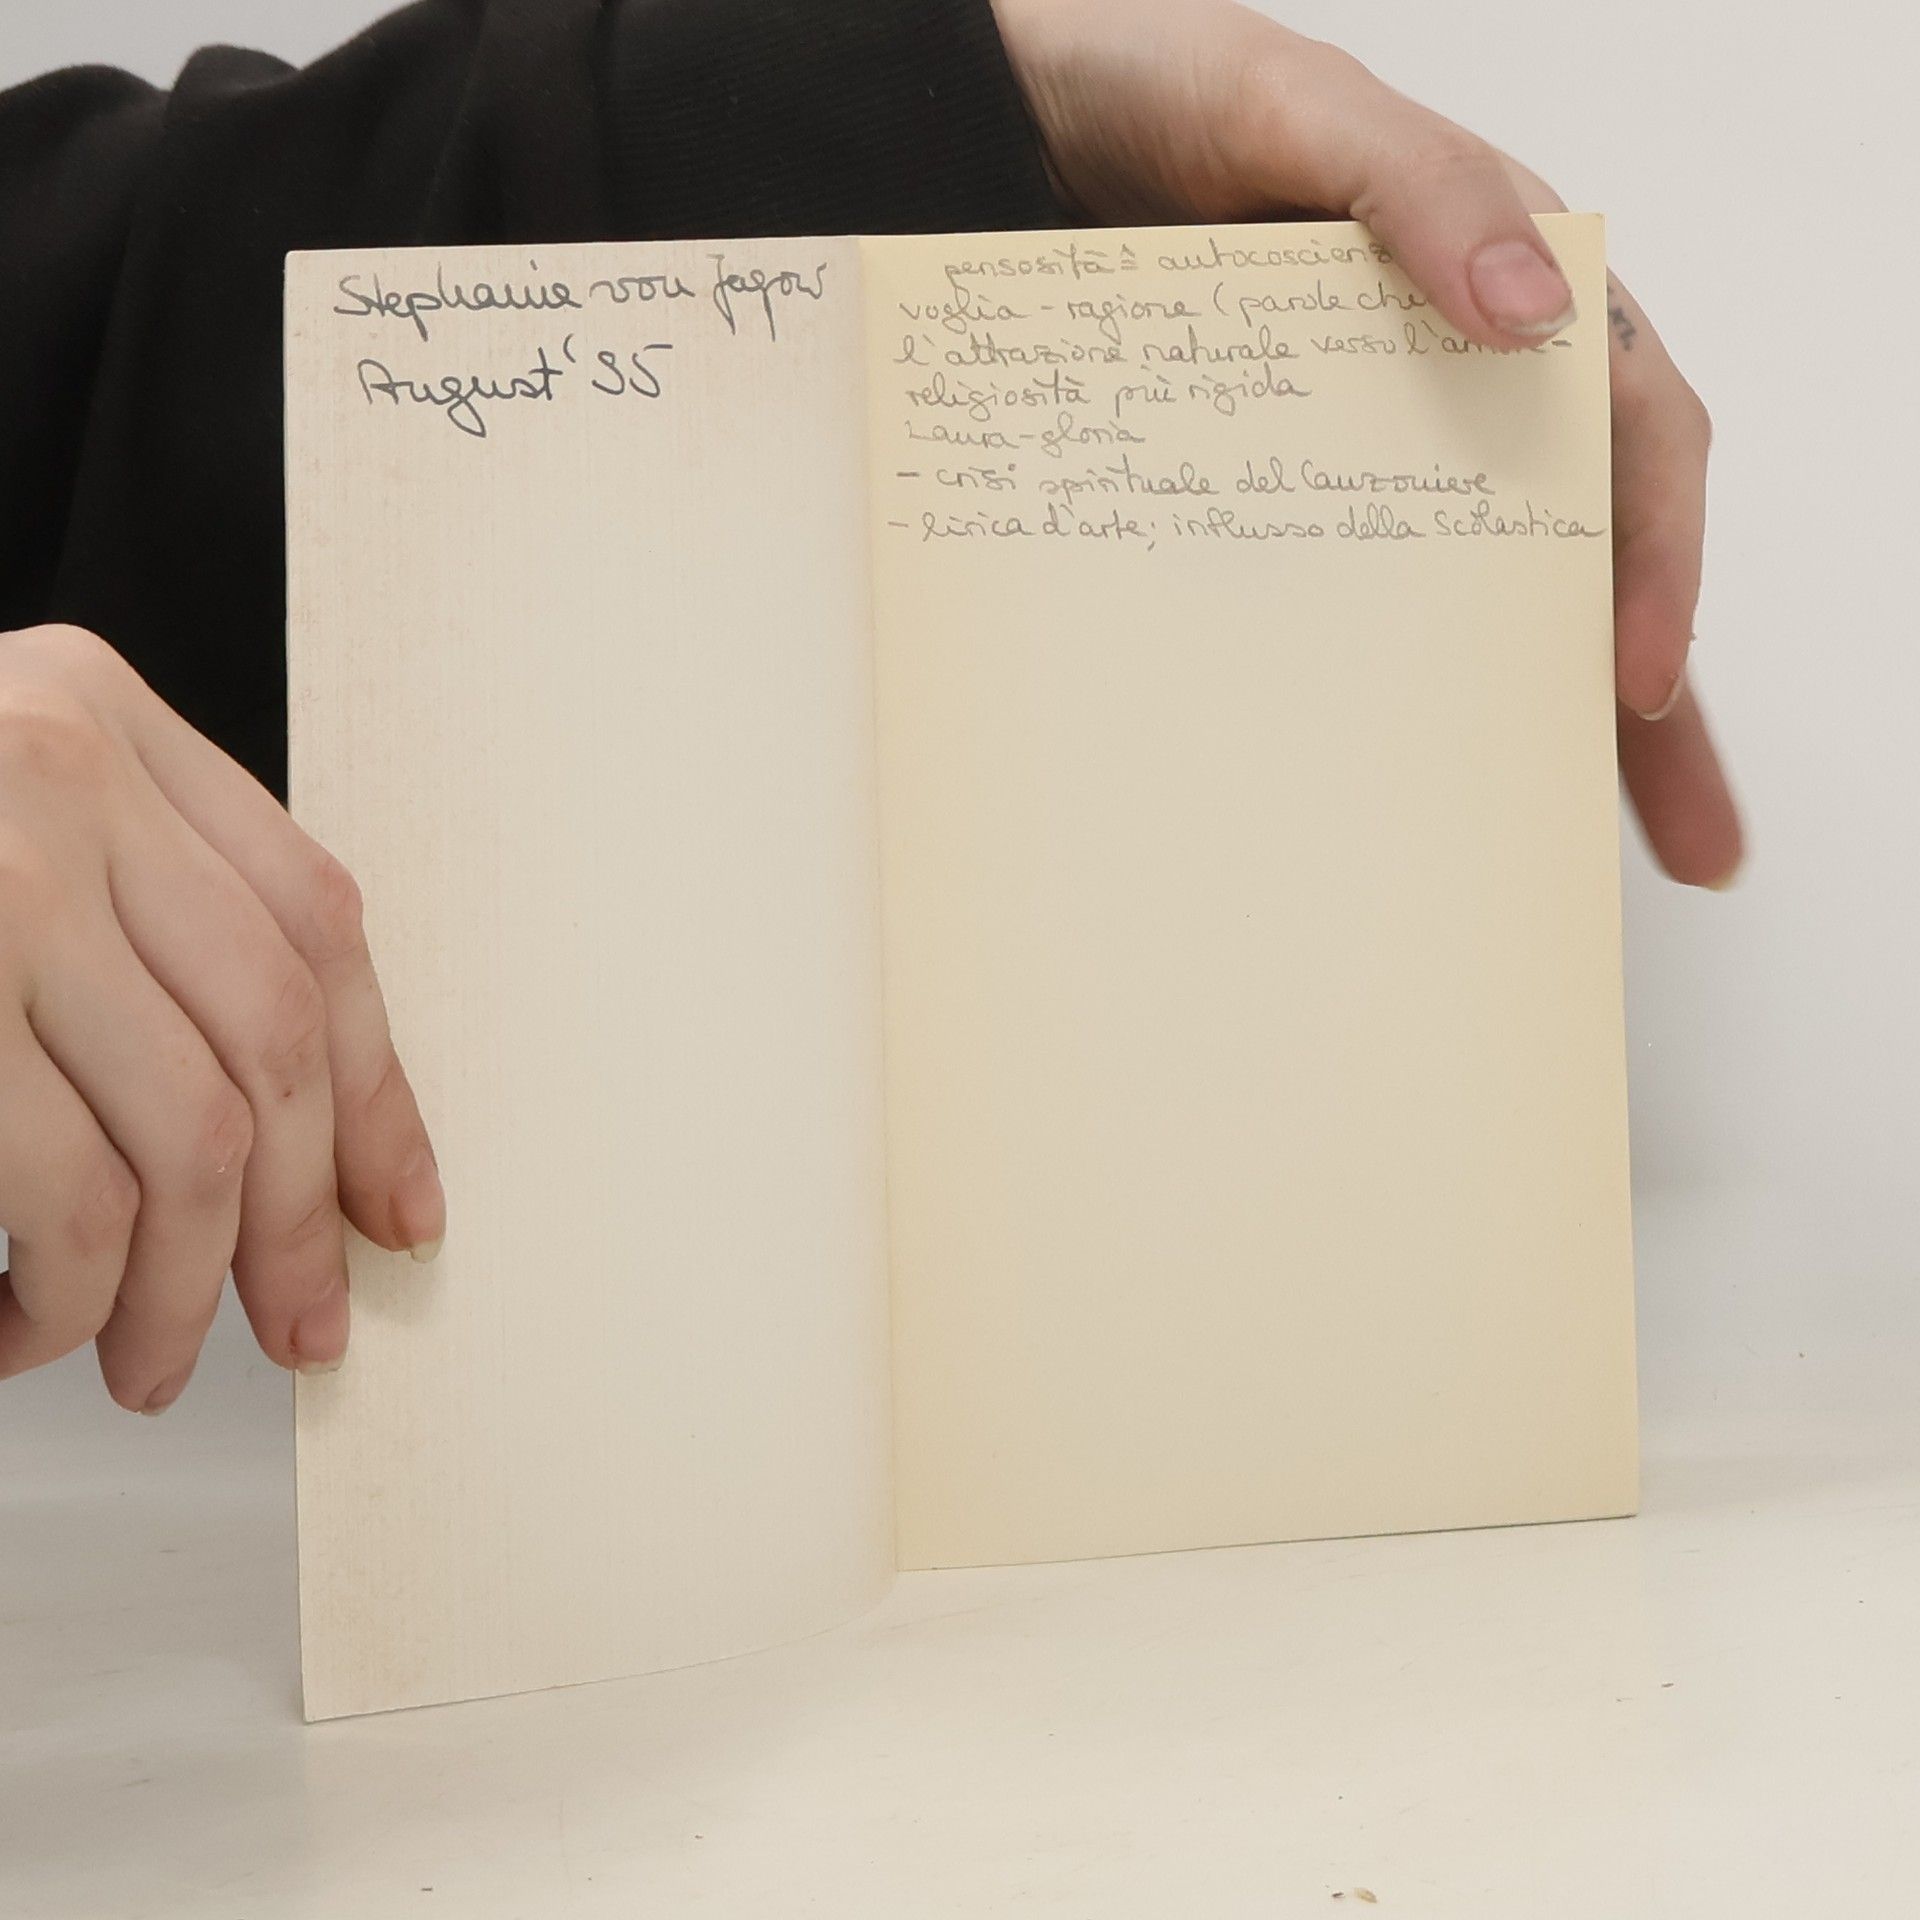 Stephanie von Jagow
August '95
pensosità ≙ autocoscienz
voglia - ragione (parole che
l'attrazione naturale verso l'amore -
religiosità più rigida
Laura - gloria
- crisi spirituale del Canzoniere
- lirica d'arte; influsso della Scolastica